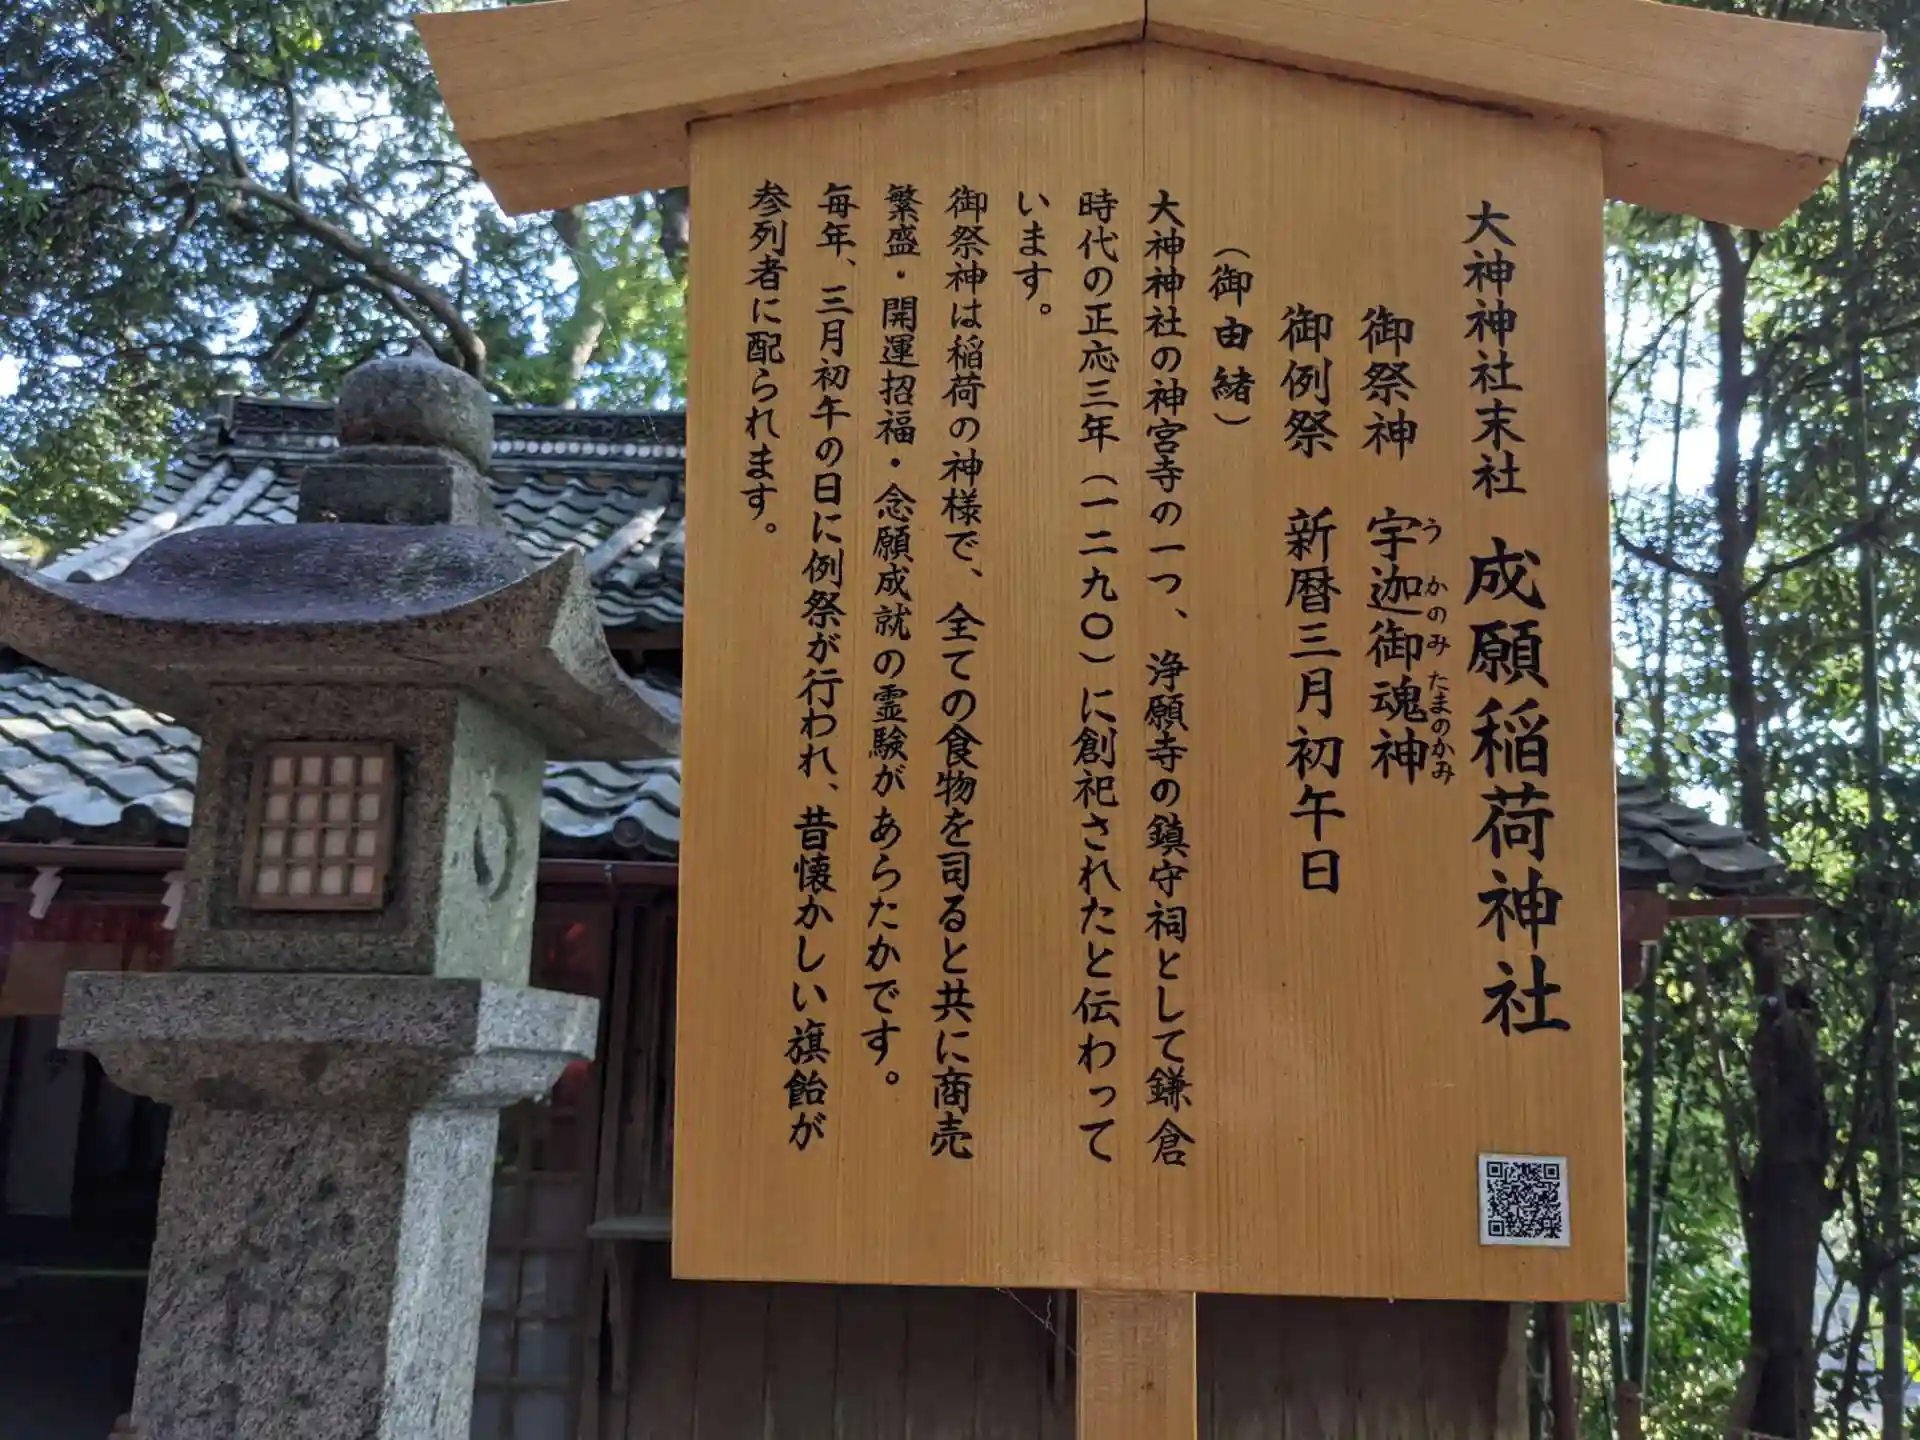 大神神社末社 成願稲荷神社
御祭神 宇迦御魂神
うかのみたまのかみ
御例祭 新暦三月初午日
（御由緒）
大神神社の神宮寺の一つ、浄願寺の鎮守祠として鎌倉
時代の正応三年（一二九〇）に創祀されたと伝わって
います。
御祭神は稲荷の神様で、全ての食物を司ると共に商売
繁盛・開運招福・念願成就の霊験があらたかです。
毎年、三月初午の日に例祭が行われ、昔懐かしい旗飴が
参列者に配られます。